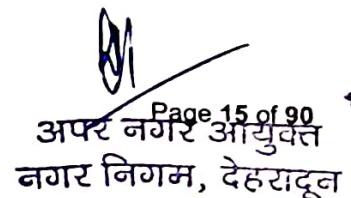 Page 15 of 90
अपर नगर आयुक्त
नगर निगम, देहरादून